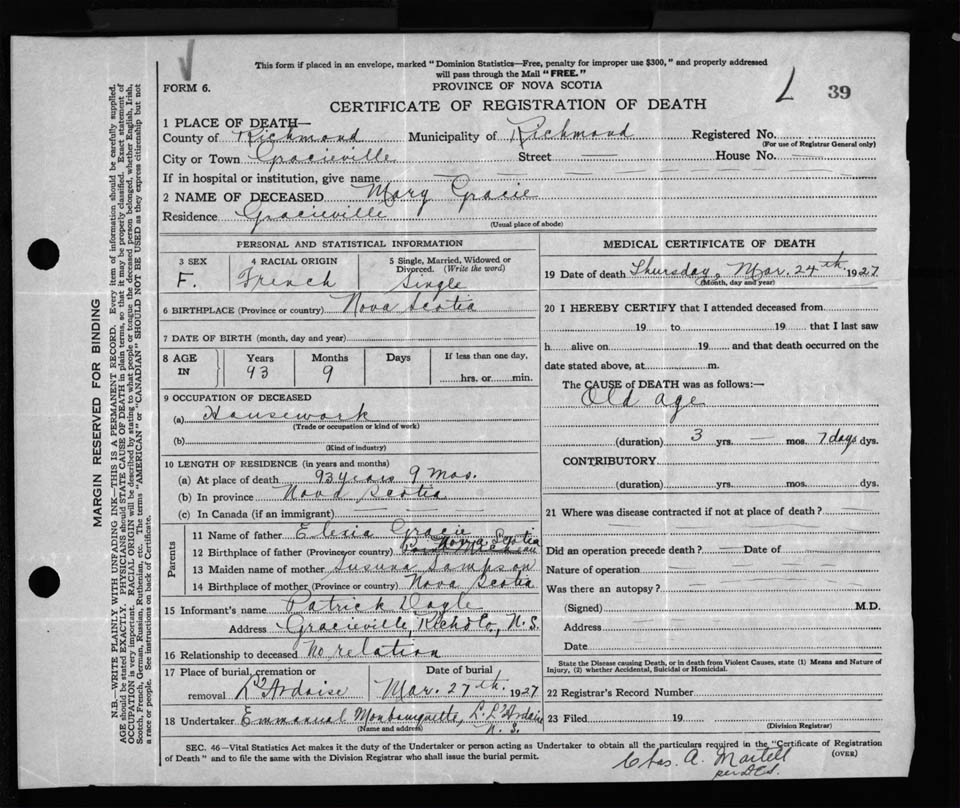 This form if placed in an envelope, marked "Dominion Statistics—Free, penalty for improper use $300," and properly addressed
will pass through the Mail "FREE."
FORM 6.
PROVINCE OF NOVA SCOTIA
CERTIFICATE OF REGISTRATION OF DEATH
L 39
1 PLACE OF DEATH—
County of Richmond Municipality of Richmond Registered No.
(For use of Registrar General only)
City or Town Gracieville Street — House No. —
If in hospital or institution, give name
2 NAME OF DECEASED Mary Gracie
Residence Gracieville
(Usual place of abode)
PERSONAL AND STATISTICAL INFORMATION
3 SEX 4 RACIAL ORIGIN 5 Single, Married, Widowed or
Divorced. (Write the word)
F. French Single
6 BIRTHPLACE (Province or country) Nova Scotia
7 DATE OF BIRTH (month, day and year)
8 AGE IN Years Months Days If less than one day,
93 9 hrs. or min.
9 OCCUPATION OF DECEASED
(a) Housework
(Trade or occupation or kind of work)
(b)
(Kind of industry)
10 LENGTH OF RESIDENCE (in years and months)
(a) At place of death 93 years 9 mos.
(b) In province Nova Scotia
(c) In Canada (if an immigrant)
Parents
11 Name of father Elesia Gracie
12 Birthplace of father (Province or country) Nova Scotia
13 Maiden name of mother Susuna Sampson
14 Birthplace of mother (Province or country) Nova Scotia
15 Informant's name Patrick Doyle
Address Gracieville, Rich Co, N.S.
16 Relationship to deceased No relation
17 Place of burial, cremation or Date of burial
removal L'Ardoise Mar. 27th. 1927
18 Undertaker Emmanual Mombourquette, L. L'Ardoise
(Name and address) N.S.
MEDICAL CERTIFICATE OF DEATH
19 Date of death Thursday, Mar. 24th 1927
(Month, day and year)
20 I HEREBY CERTIFY that I attended deceased from
19 to 19 that I last saw
h alive on 19 and that death occurred on the
date stated above, at m.
The CAUSE of DEATH was as follows:—
Old age
(duration) 3 yrs. — mos. 7 days dys.
CONTRIBUTORY
(duration) yrs. mos. dys.
21 Where was disease contracted if not at place of death?
Did an operation precede death? — Date of
Nature of operation
Was there an autopsy?
(Signed) M.D.
Address
Date
State the Disease causing Death, or in death from Violent Causes, state (1) Means and Nature of
Injury, (2) whether Accidental, Suicidal or Homicidal.
22 Registrar's Record Number
23 Filed 19
(Division Registrar)
SEC. 46—Vital Statistics Act makes it the duty of the Undertaker or person acting as Undertaker to obtain all the particulars required in the "Certificate of Registration
of Death" and to file the same with the Division Registrar who shall issue the burial permit.
(OVER)
Chas. A. Martell
per
MARGIN RESERVED FOR BINDING
N.B.—WRITE PLAINLY WITH UNFADING INK—THIS IS A PERMANENT RECORD. Every item of information should be carefully supplied.
AGE should be stated EXACTLY. PHYSICIANS should STATE CAUSE OF DEATH in plain terms, so that it may be properly classified. Exact statement of
OCCUPATION is very important. RACIAL ORIGIN will be described by stating to what people or tongue the deceased person belonged, whether English, Irish,
Scotch, French, German, Russian, Ruthenian, etc. The terms "AMERICAN" or "CANADIAN" SHOULD NOT BE USED as they express citizenship but not
a race or people. See instructions on back of Certificate.